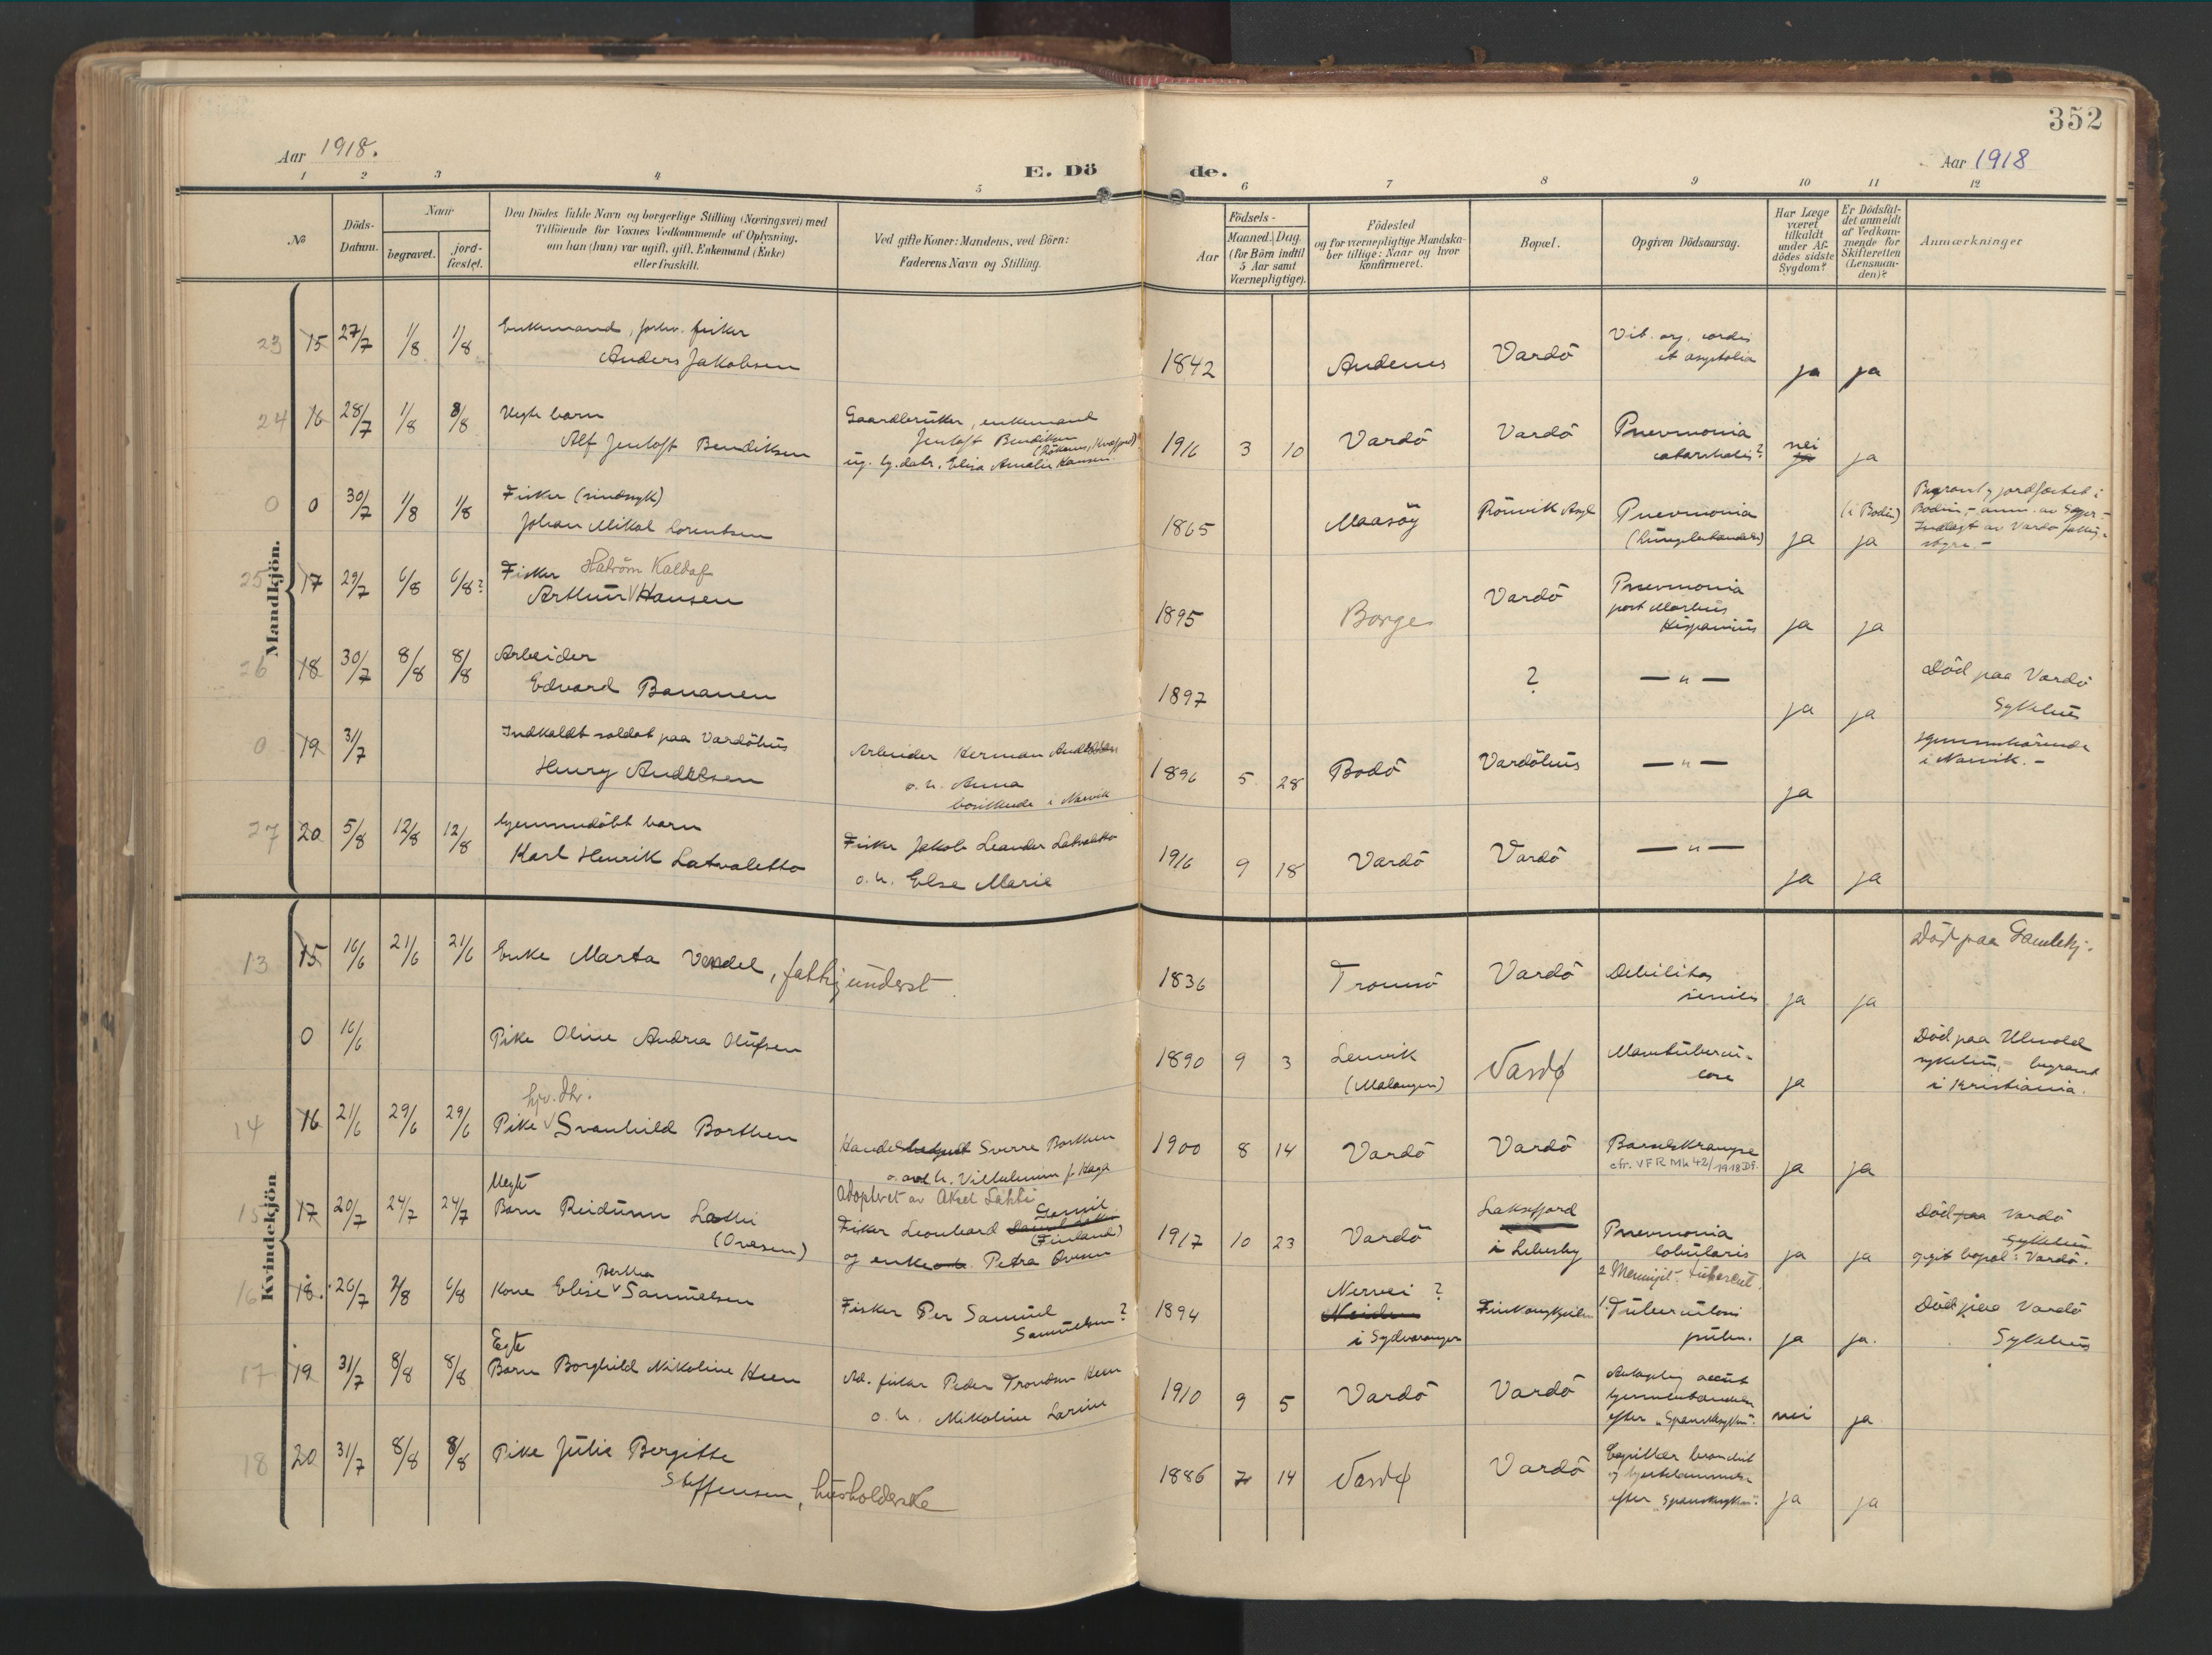 352
Aar 1918.
E. Dö
de.
Aar 1918
1 2 3 4 5 6 7 8 9 10 11 12
No
Döds-
Datum.
Naar
begravet.
jord-
fæstet.
Den Dödes fulde Navn og borgerlige Stilling (Næringsvei) med
Tilföiende for Voxnes Vedkommende af Oplysning,
om han (hun) var ugift, gift, Enkemand (Enke)
eller fraskilt.
Ved gifte Koner: Mandens, ved Börn:
Faderens Navn og Stilling.
Födsels-
Aar
Maaned. Dag.
(for Börn indtil
5 Aar samt
Værnepligtige).
Födested
og for værnepligtige Mandska-
ber tillige: Naar og hvor
konfirmeret.
Bopæl.
Opgiven Dödsaarsag.
Har Læge
været
tilkaldt
under Af-
dödes sidste
Sygdom?
Er Dödsfal-
det anmeldt
af Vedkom-
mende for
Skifteretten
(Lensman-
den)?
Anmærkninger
Mandkjön.
23 15 27/7 1/8 1/8 Enkemand, forhv. fisker
Anders Jakobsen
1842 Andenes Vardö Vit. org. cordis
et asystolia
ja ja
24 16 28/7 1/8 8/8 Uegte barn
Alf Jentoft Bendiksen
Gaardbruker, enkemand
Jentoft Bendiksen
ug. Elisa Amalie Hansen
1916 3 10 Vardö Vardö Pnevmonia
catarrhalis? nei ja ja
0 0 30/7 1/8 1/8 Fisker (sindssyk)
Johan Mikal Lorentsen
1865 Maasöy Rönvik Asyl Pnevmonia
(Lungebetændelse) ja (i Bodin)
ja
Begravet, jordfæstet i
Bodin,
Indlagt av Vardö fattig-
styre.-
25 17 29/7 6/8 6/8? Fisker
Arthur V Hansen
1895 Borge Vardö Pnevmonia
post Morbus
Hispanius ja ja
26 18 30/7 8/8 8/8 Arbeider
Edvard Bananen
1897 ? — " — ja ja
Död paa Vardö
Sykehus
0 19 31/7 Indkaldt soldat paa Vardöhus
Henry Andersen
Arbeider Herman Andersen
o. h. Anna
bosittende i Narvik
1896 5 28 Bodö Vardöhus — " — ja
Hjemmehörende
i Narvik.-
27 20 5/8 12/8 12/8 hjemmedöbt barn
Karl Henrik Latvaletto
Fisker Jakob Leander Latvaletto
o. h. Else Marie
1916 9 18 Vardö Vardö — " — ja ja
Kvindekjön
13 15 16/6 21/6 21/6 Enke Marta Vendel, fattigunderst.
1836 Tromsö Vardö Debilitas
senilis ja ja
Död paa Gamlehj.
0 16/6 Pike Oline Andrea Olufsen
1890 9 3 Lenvik
(Malangen) Vardø ja
Död paa Ullevold
sykehus,- begravet
i Kristiania.
14 16 21/6 29/6 29/6 hjv. dtr.
Pike V Svanhild Borthen
Sverre Borthen
o. h. Vilhelmine f. Haga
1900 8 14 Vardö Vardö Barselskrampe
cfr. VFR Mk 42/1918 ja ja
15 17 20/7 24/7 24/7 Uegte
Barn Reidunn Lahti
(Ovesen)
Adopteret av Aksel Lahti
Fisker Leonhard
(Finland)
og enke Petra Ovesen
1917 10 23 Vardö Laksefjord
i Lebesby Pnevmonia
lobularis ja ja
Död paa Vardö
Sykehus
opgit bopæl: Vardö.
16 18. 26/7 2/8 6/8 Kone Elise V Bertha Samuelsen
Fisker Per Samuel
Samuelsen?
1894 Nervei?
Neiden
i Sydvaranger 2 Meningit. tubercul.
1. Tuberculosi
pulm. ja ja.
Död paa Vardö
Sykehus
17 19 31/7 8/8 8/8 Egte
Barn Borghild Nikoline Heen
Ad. fisker Peder Trondsen Heen
o. h. Nikoline Larine
1910 9 5 Vardö Vardö Antagelig accut
hjernebetændelse
efter "Spanskesyken". nei ja
18 20 31/7 8/8 8/8 Pike Julie Bergitte
Steffensen, husholderske
1886 7 14 Vardø Vardö Capillær bronchit
og hjertelammelse
efter "Spanskesyken". ja ja